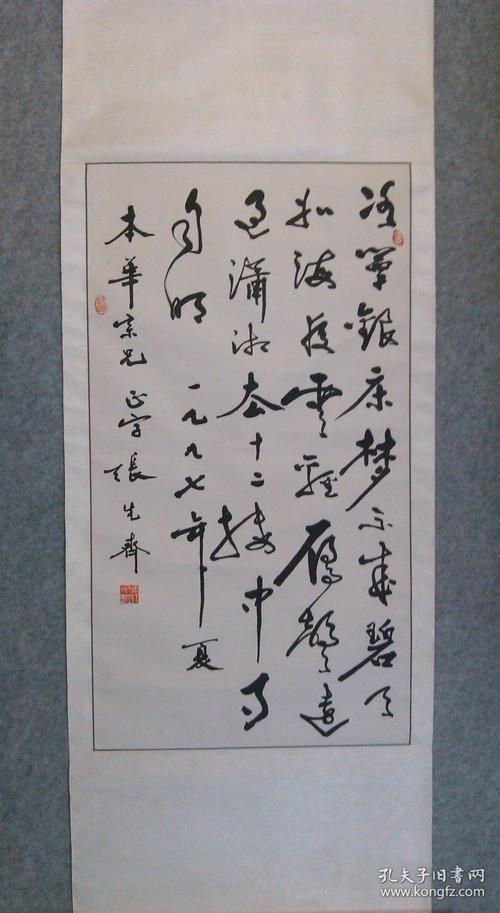 冰簟銀床梦不成碧天
如海夜雲輕雁聲遠
過瀟湘去十二樓中月
自明 一九九七年夏
本華宗兄正字張先齊
孔夫子旧书网
www.kongfz.com